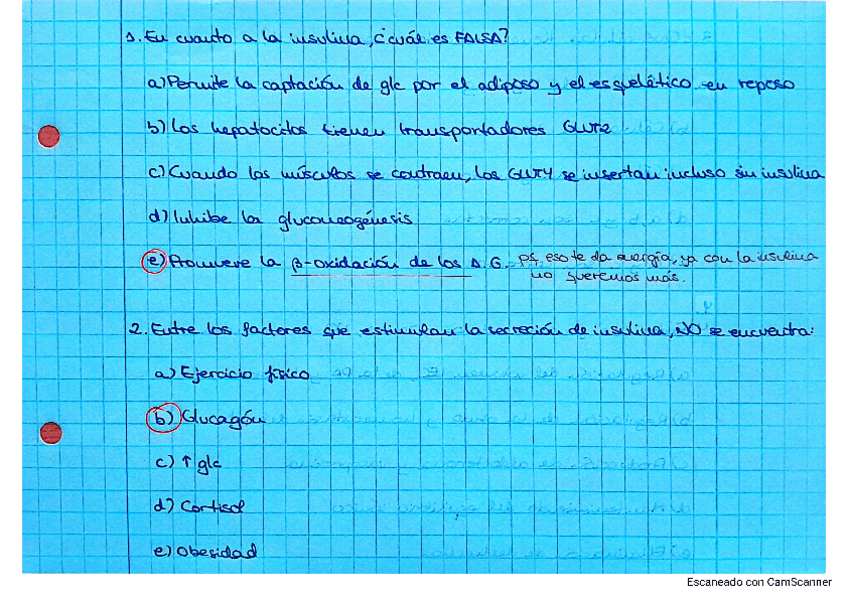 1. En cuanto a la insulina, ¿cuál es FALSA?
a) Permite la captación de glc por el adiposo y el esquelético en reposo
b) Los hepatocitos tienen transportadores GLUT2
c) Cuando los músculos se contraen, los GLUT4 se insertan incluso sin insulina
d) Inhibe la gluconeogénesis
e) Promueve la β-oxidación de los A.G. ps eso te da energía, ya con la insulina
no queremos más.
2. Entre los factores que estimulan la secreción de insulina, NO se encuentra:
a) Ejercicio físico
b) Glucagón
c) ↑ glc
d) Cortisol
e) Obesidad
Escaneado con CamScanner